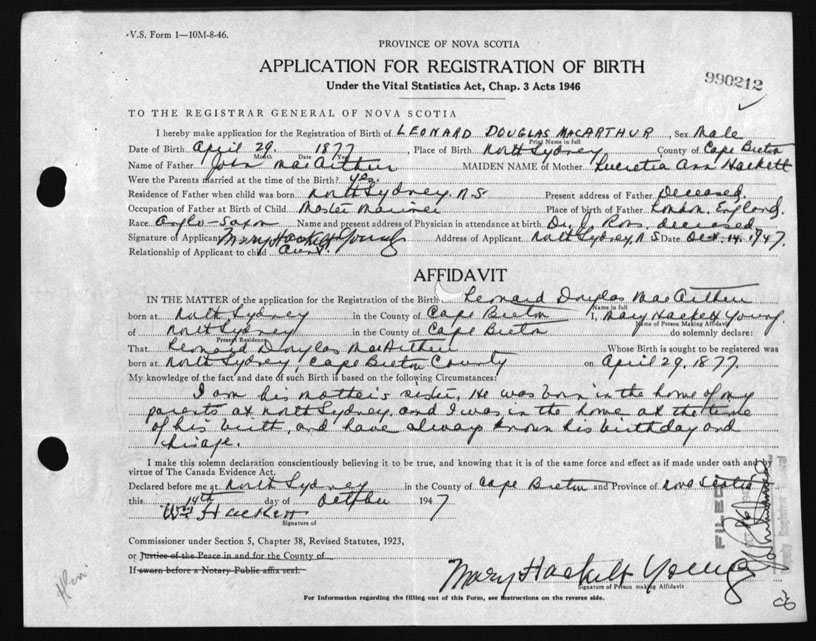 V.S. Form 1—10M-8-46.
PROVINCE OF NOVA SCOTIA
APPLICATION FOR REGISTRATION OF BIRTH
990212
Under the Vital Statistics Act, Chap. 3 Acts 1946
TO THE REGISTRAR GENERAL OF NOVA SCOTIA
I hereby make application for the Registration of Birth of LEONARD DOUGLAS MACARTHUR, Sex Male
Print Name in full
Date of Birth April 29. 1877, Place of Birth North Sydney County of Cape Breton
Month Date Year
Name of Father John MacArthur MAIDEN NAME of Mother Lucretia Ann Hackett
Were the Parents married at the time of the Birth? yes.
Residence of Father when child was born North Sydney. N.S Present address of Father Deceased.
Occupation of Father at Birth of Child Master Mariner Place of birth of Father London. England.
Race Anglo-Saxon Name and present address of Physician in attendance at birth Dr. J. Ross, deceased
Signature of Applicant Mary Hackett Young Address of Applicant North Sydney, N S Date Oct. 14. 1947.
Relationship of Applicant to child Aunt.
AFFIDAVIT
IN THE MATTER of the application for the Registration of the Birth Leonard Douglas MacArthur
Name in full
born at North Sydney in the County of Cape Breton I, Mary Hackett Young.
Name of Person Making Affidavit
of North Sydney in the County of Cape Breton do solemnly declare:
Present Residence
That Leonard Douglas MacArthur Whose Birth is sought to be registered was
born at North Sydney, Cape Breton County on April 29, 1877.
My knowledge of the fact and date of such Birth is based on the following Circumstances:
I am his mother's sister. He was born in the home of my
parents at North Sydney, and I was in the home at the time
of his birth, and have always known his birthday and
his age.
I make this solemn declaration conscientiously believing it to be true, and knowing that it is of the same force and effect as if made under oath and
virtue of The Canada Evidence Act.
Declared before me at North Sydney in the County of Cape Breton and Province of Nova Scotia
this 14th day of October 1947
Wm Hackett
Signature of
FILED
Commissioner under Section 5, Chapter 38, Revised Statutes, 1923,
or Justice of the Peace in and for the County of
If sworn before a Notary Public affix seal.
Mary Hackett Young
Signature of Person making Affidavit
For Information regarding the filling out of this Form, see instructions on the reverse side.